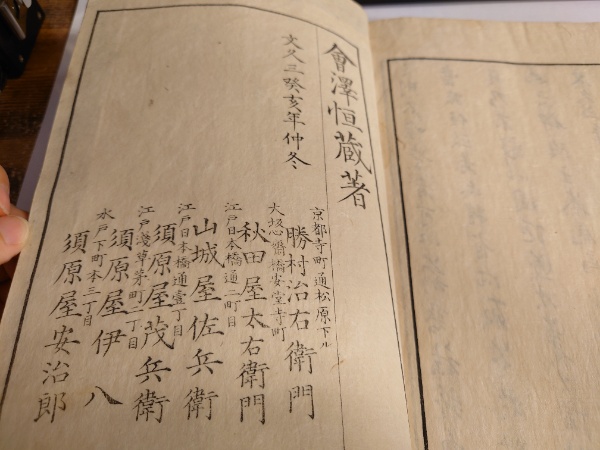 會澤恒蔵著
文久三癸亥年仲冬
京都寺町通松原下ル
勝村治右衛門
大坂心齋橋安堂寺町
秋田屋太右衛門
江戸日本橋通二町目
山城屋佐兵衛
江戸日本橋通壹丁目
須原屋茂兵衛
江戸淺草茅町二丁目
須原屋伊八
水戸下町本三丁目
須原屋安治郎